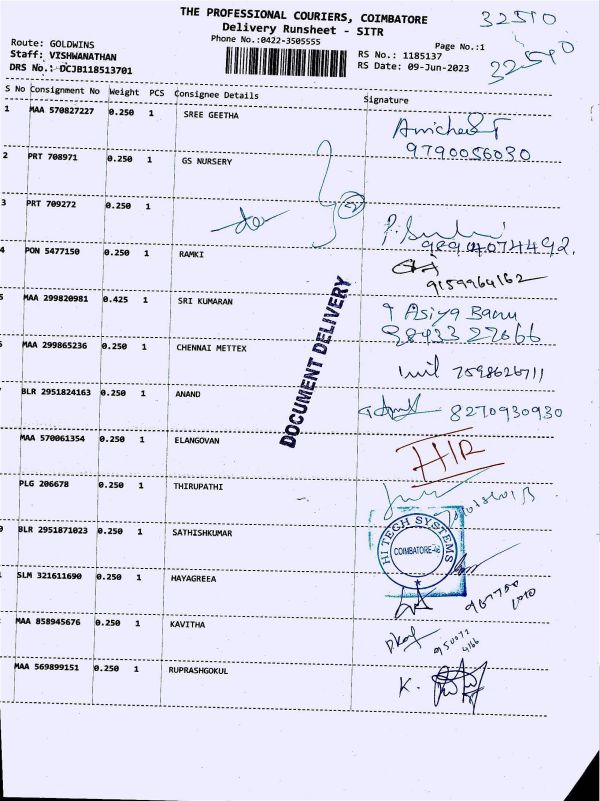 THE PROFESSIONAL COURIERS, COIMBATORE
32510
Delivery Runsheet - SITR
Phone No.:0422-3505555
Page No.:1
32510
Route: GOLDWINS
Staff: VISHWANATHAN
RS No.: 1185137
DRS No.: DCJB118513701
RS Date: 09-Jun-2023
S No Consignment No Weight PCS Consignee Details Signature
1 MAA 570827227 0.250 1 SREE GEETHA
9790056030
2 PRT 708971 0.250 1 GS NURSERY
3 PRT 709272 0.250 1
9894074492.
4 PON 5477150 0.250 1 RAMKI
9159964162
5 MAA 299820981 0.425 1 SRI KUMARAN
Asiya Banu
98433 27666
DOCUMENT DELIVERY
MAA 299865236 0.250 1 CHENNAI METTEX
7598626711
BLR 2951824163 0.250 1 ANAND
8270930930
MAA 570061354 0.250 1 ELANGOVAN
HIR
PLG 206678 0.250 1 THIRUPATHI
BLR 2951871023 0.250 1 SATHISHKUMAR
HI TECH SYSTEMS
COIMBATORE
SLM 321611690 0.250 1 HAYAGREEA
MAA 858945676 0.250 1 KAVITHA
MAA 569899151 0.250 1 RUPRASHGOKUL
K.